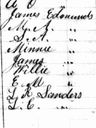 James Edmunds
M. A.
S. A.
Minnie
James
Willie
E.
L. R. Sanders
S. E.